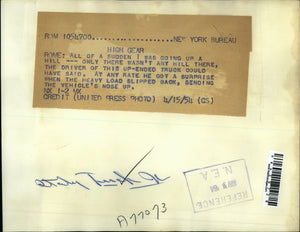 ROM 1054700..................NEW YORK BUREAU
HIGH GEAR
ROME: ALL OF A SUDDEN I WAS GOING UP A
HILL --- ONLY THERE WASN'T ANY HILL THERE,
THE DRIVER OF THIS UP-ENDED TRUCK COULD
HAVE SAID. AT ANY RATE HE GOT A SURPRISE
WHEN THE HEAVY LOAD SLIPPED BACK, SENDING
THE VEHICLE'S NOSE UP.
NX 1-2 MX
CREDIT (UNITED PRESS PHOTO) 4/15/54 (GS)
REFERENCE
N.E.A.
A77073